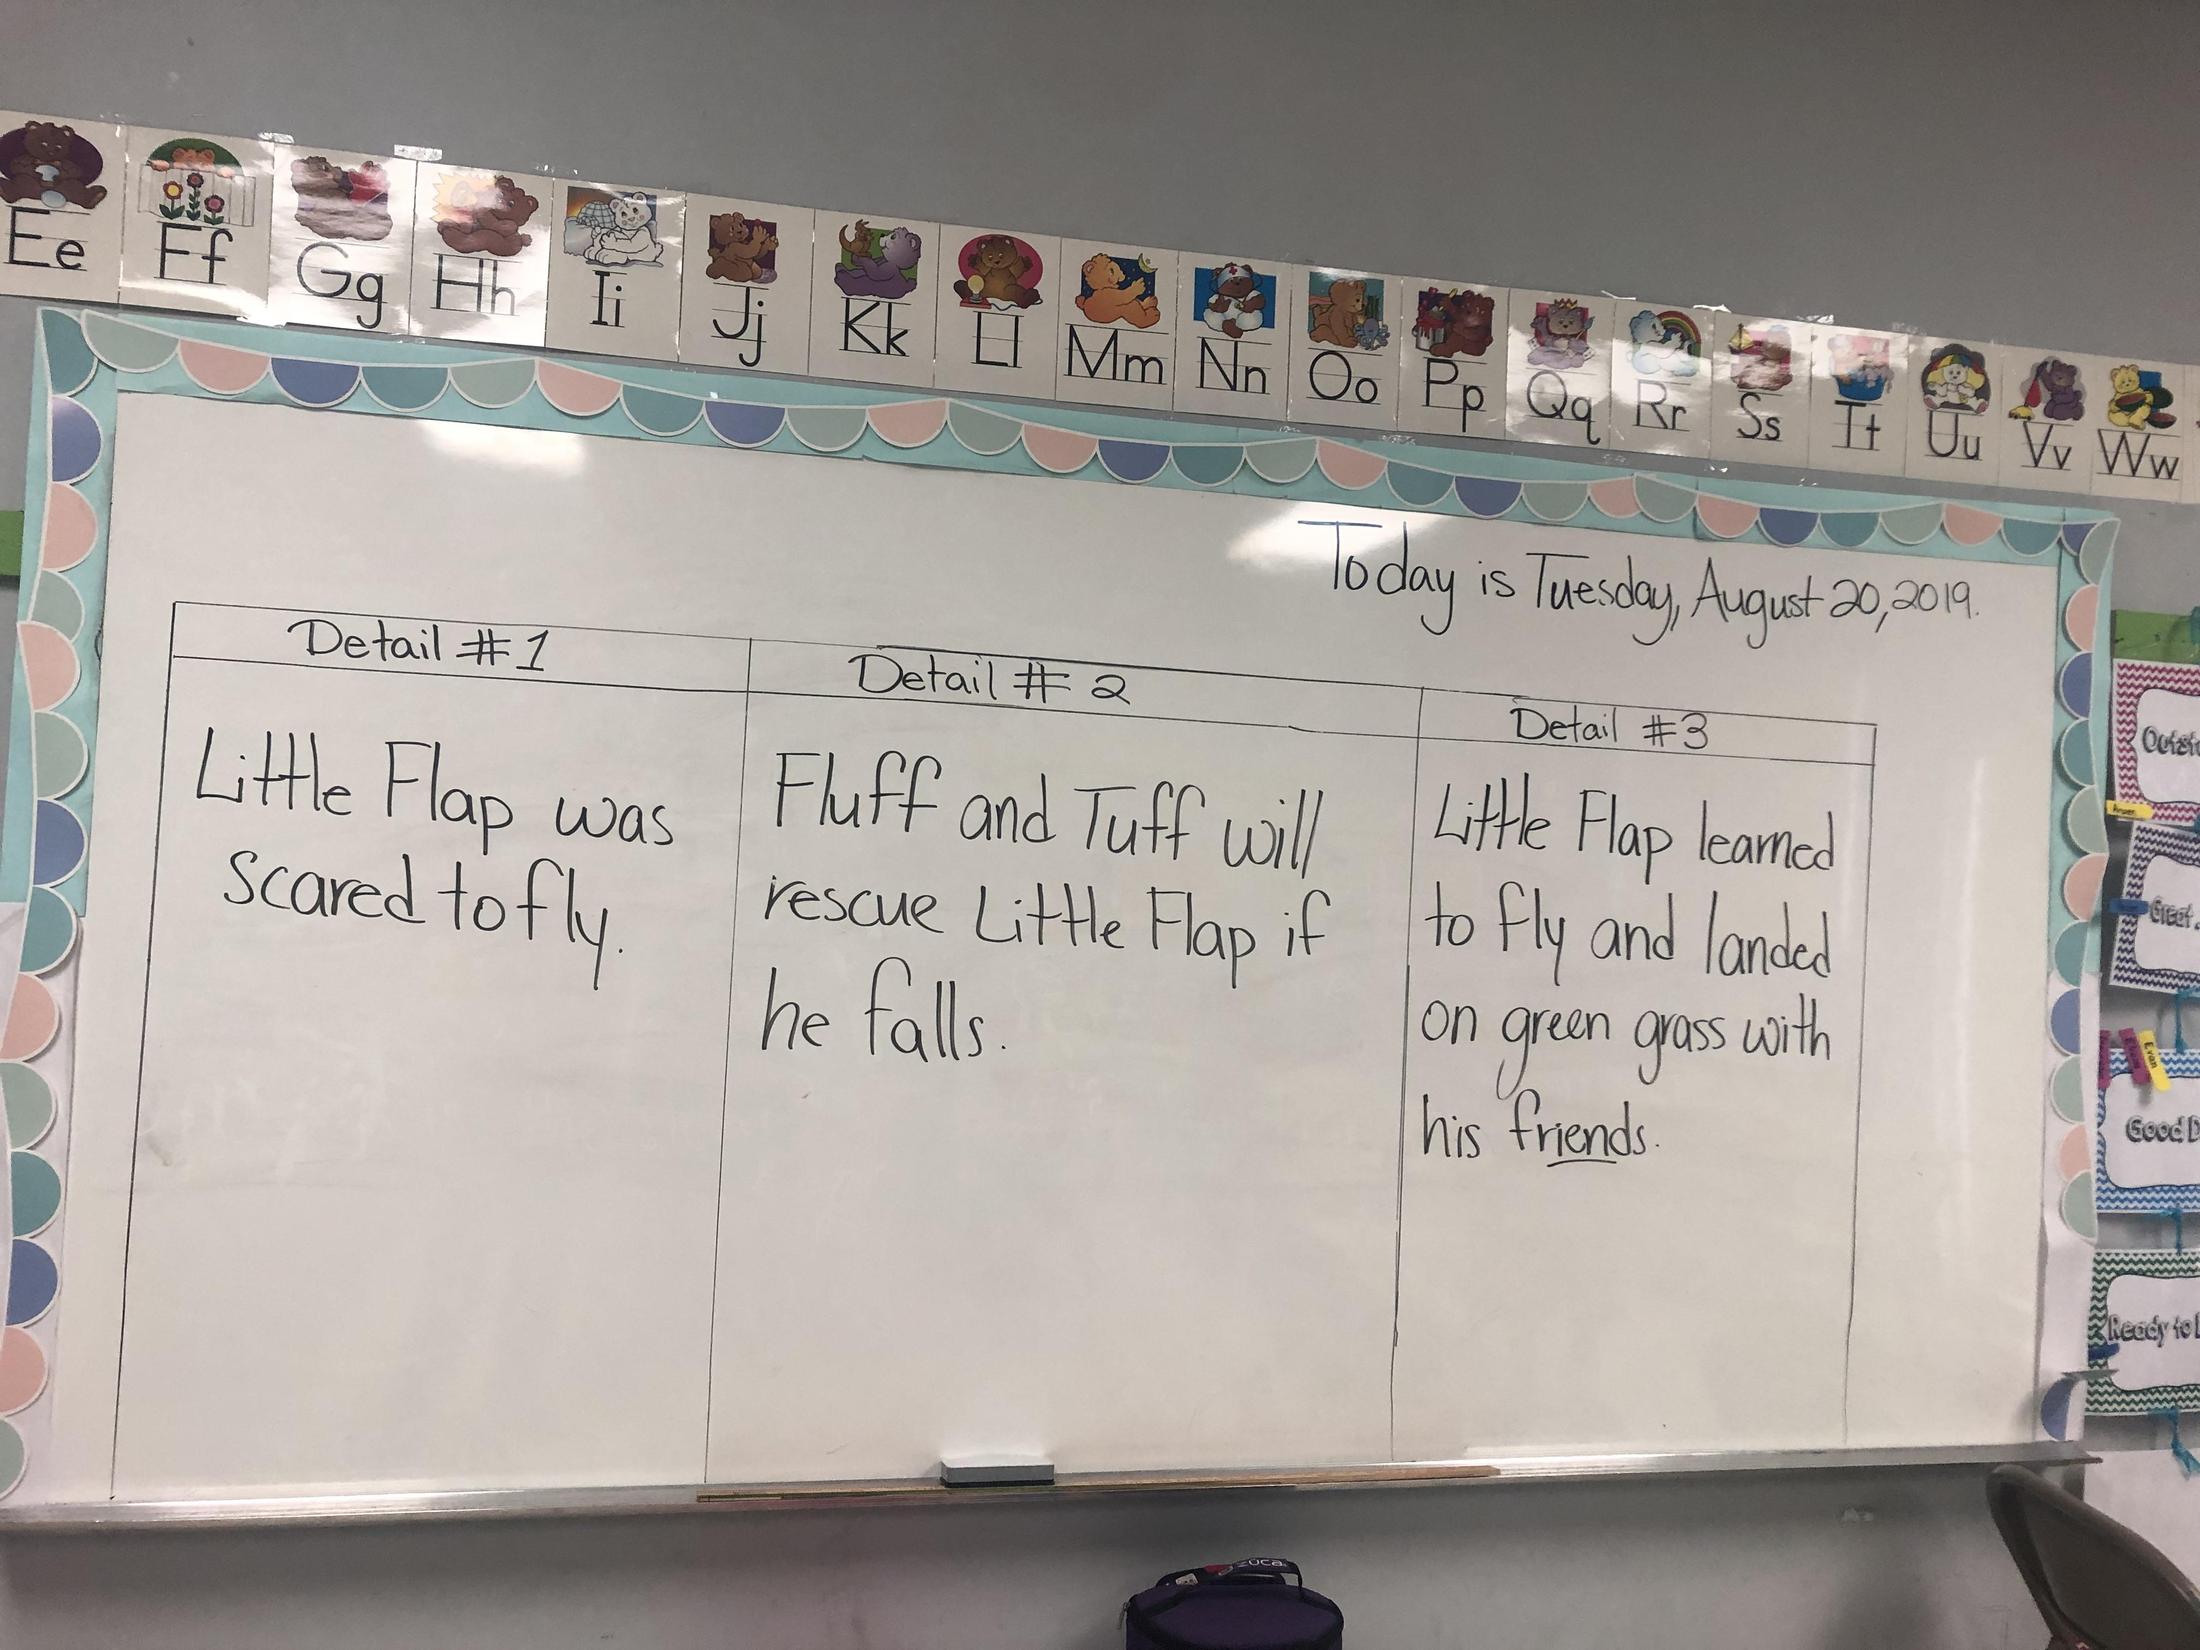 Ee Ff Gg Hh Ii Jj Kk Ll Mm Nn Oo Pp Qq Rr Ss Tt Uu Vv Ww
Today is Tuesday, August 20, 2019.
Detail #1
Little Flap was
scared to fly.
Detail # 2
Fluff and Tuff will
rescue Little Flap if
he falls.
Detail #3
Little Flap learned
to fly and landed
on green grass with
his friends.
Great
Evan
Good D
Ready to L
ZUCA